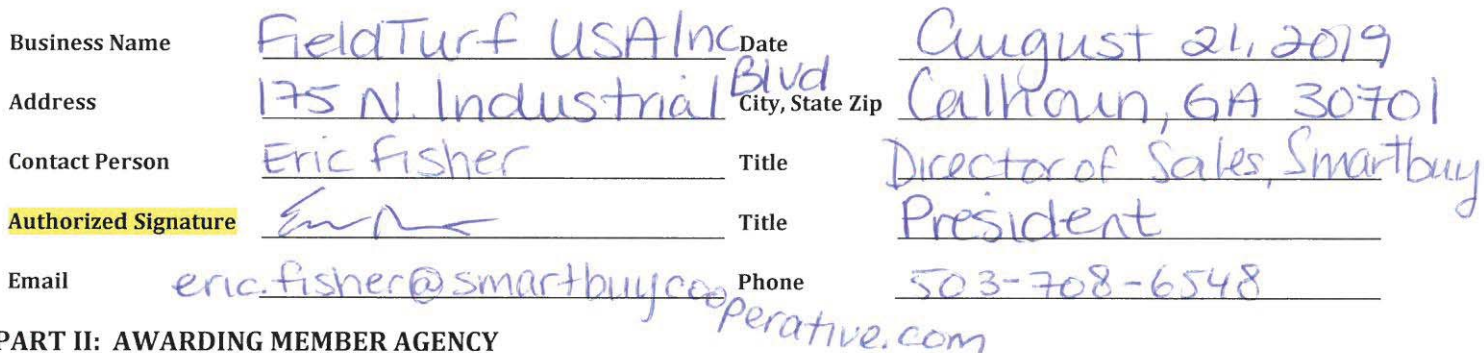 Business Name FieldTurf USA Inc Date August 21, 2019
Address 175 N. Industrial Blvd City, State Zip Calhoun, GA 30701
Contact Person Eric Fisher Title Director of Sales, Smartbuy
Authorized Signature Title President
Email eric.fisher@smartbuycooperative.com Phone 503-708-6548
PART II: AWARDING MEMBER AGENCY